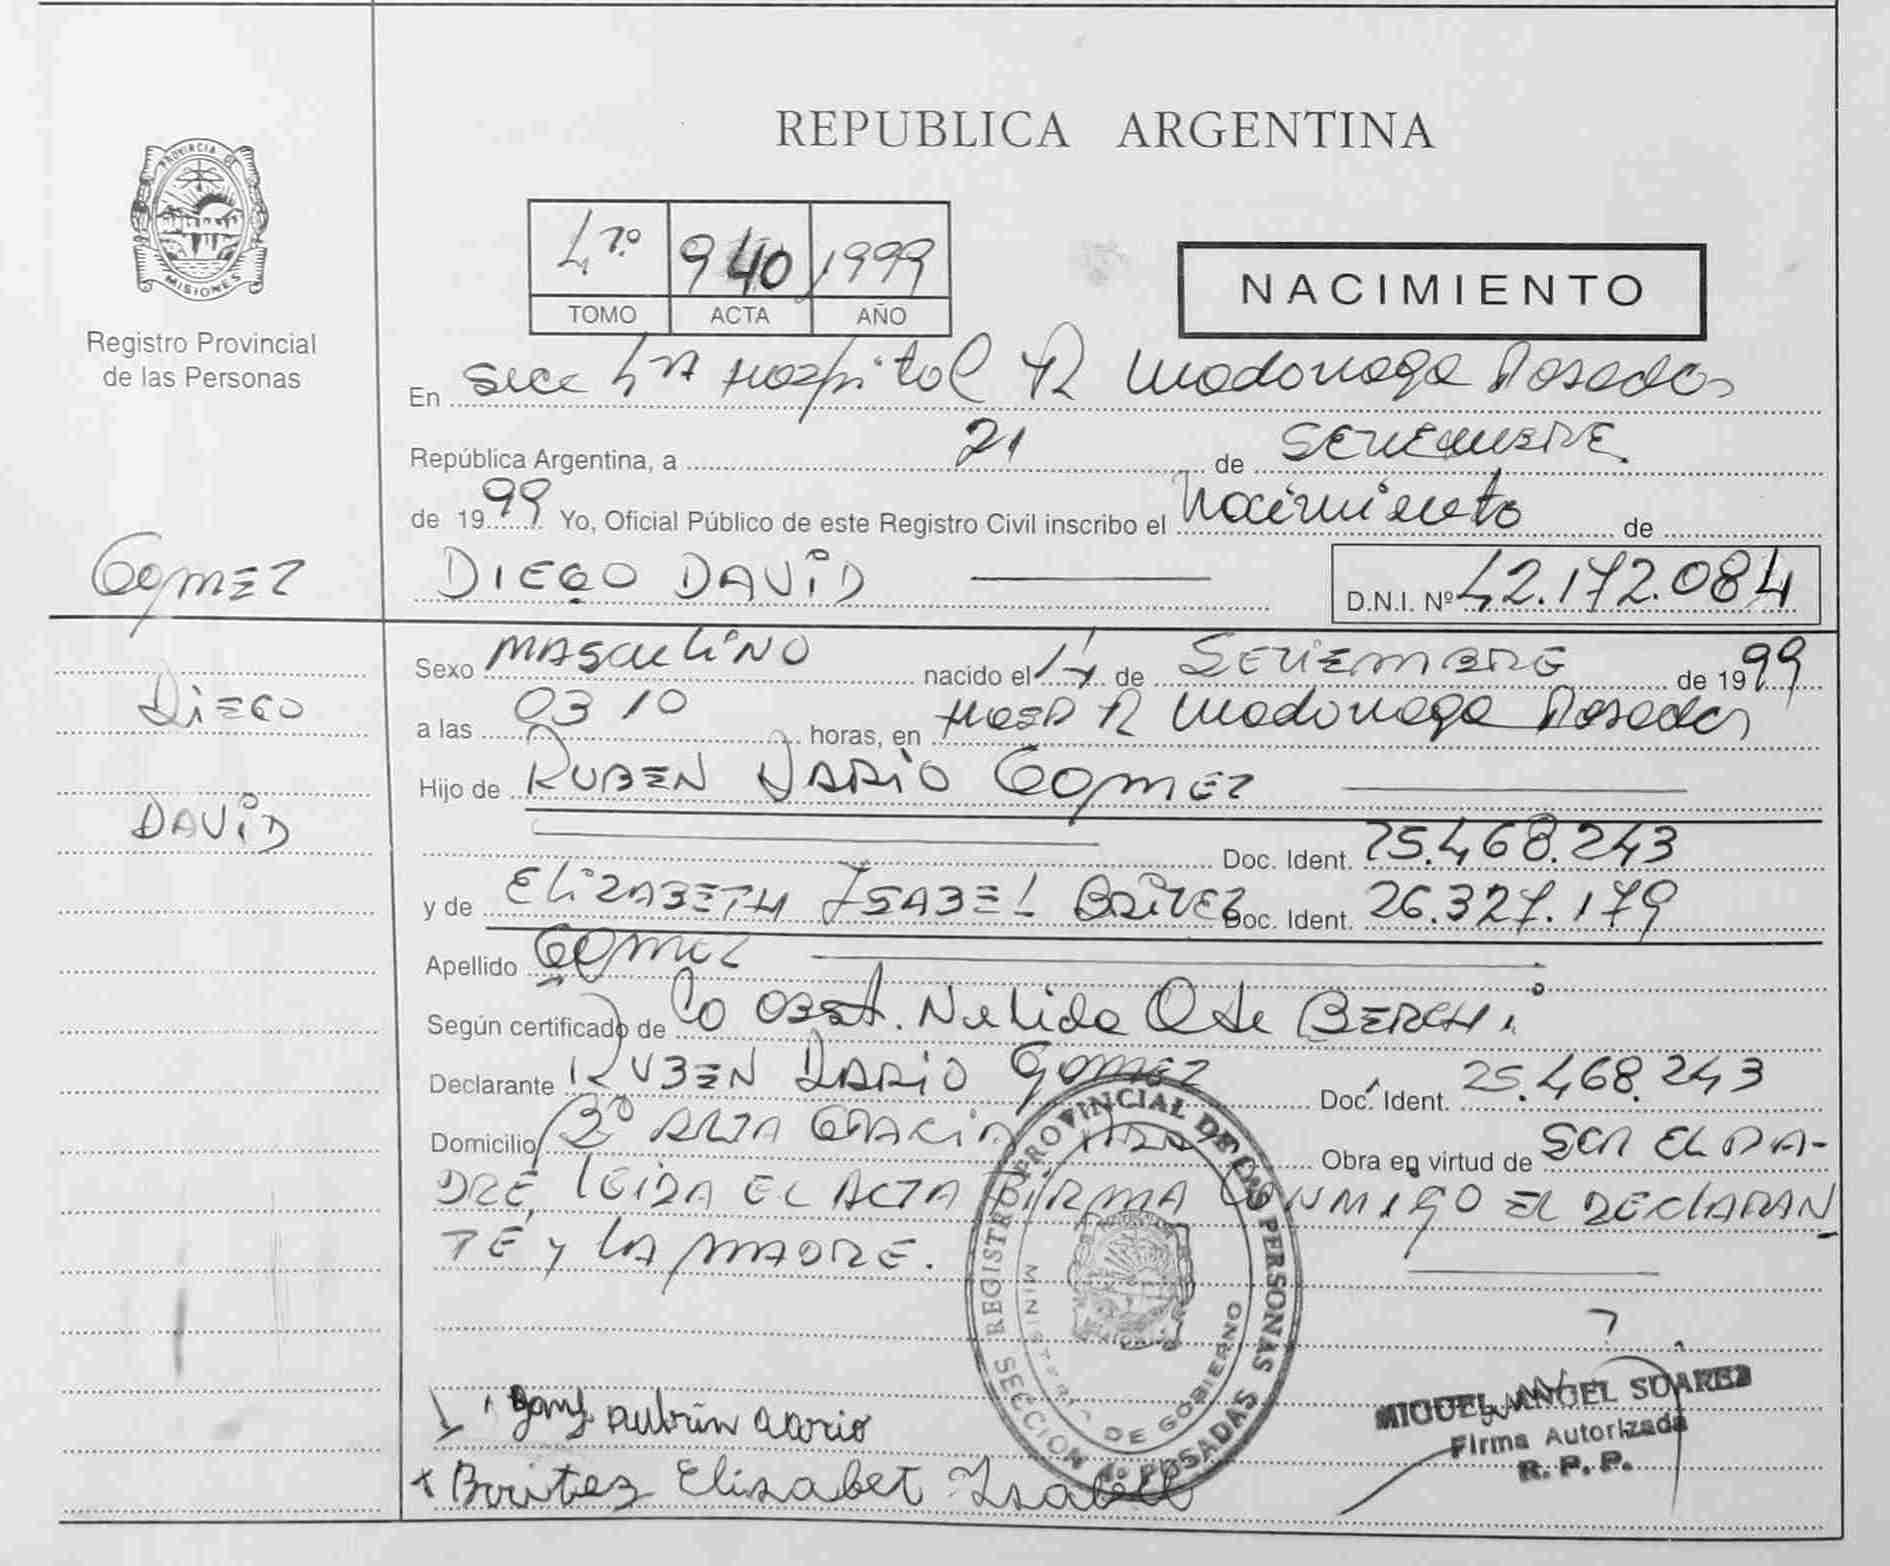 REPUBLICA ARGENTINA
PROVINCIA DE
MISIONES
Registro Provincial
de las Personas
4º 940 1999
TOMO ACTA AÑO
NACIMIENTO
En Secc 4ta Hospital R Madariaga Posadas
República Argentina, a 21 de SETIEMBRE
de 1999 Yo, Oficial Público de este Registro Civil inscribo el Nacimiento de
GOMEZ
DIEGO DAVID
D.N.I. Nº 42.172.084
Sexo MASCULINO nacido el 14 de SETIEMBRE de 1999
DIEGO
a las 03 10 horas, en HOSP R Madariaga Posadas
Hijo de RUBEN DARIO GOMEZ
DAVID
Doc. Ident. 25.468.243
y de ELIZABETH ISABEL BRITEZ Doc. Ident. 26.327.179
Apellido GOMEZ
Según certificado de La OBST. Nelida O de BERCHI
Declarante RUBEN DARIO GOMEZ Doc. Ident. 25.468.243
Domicilio Bº ALTA GRACIA Obra en virtud de SER EL PA-
DRE, LEIDA EL ACTA FIRMA CONMIGO EL DECLARAN
TE Y LA MADRE.
REGISTRO PROVINCIAL DE LAS PERSONAS
MINISTERIO DE GOBIERNO
SECCION POSADAS
MIGUEL ANGEL SUAREZ
Firma Autorizada
R. P. P.
rubén dario
Elisabet Isabel